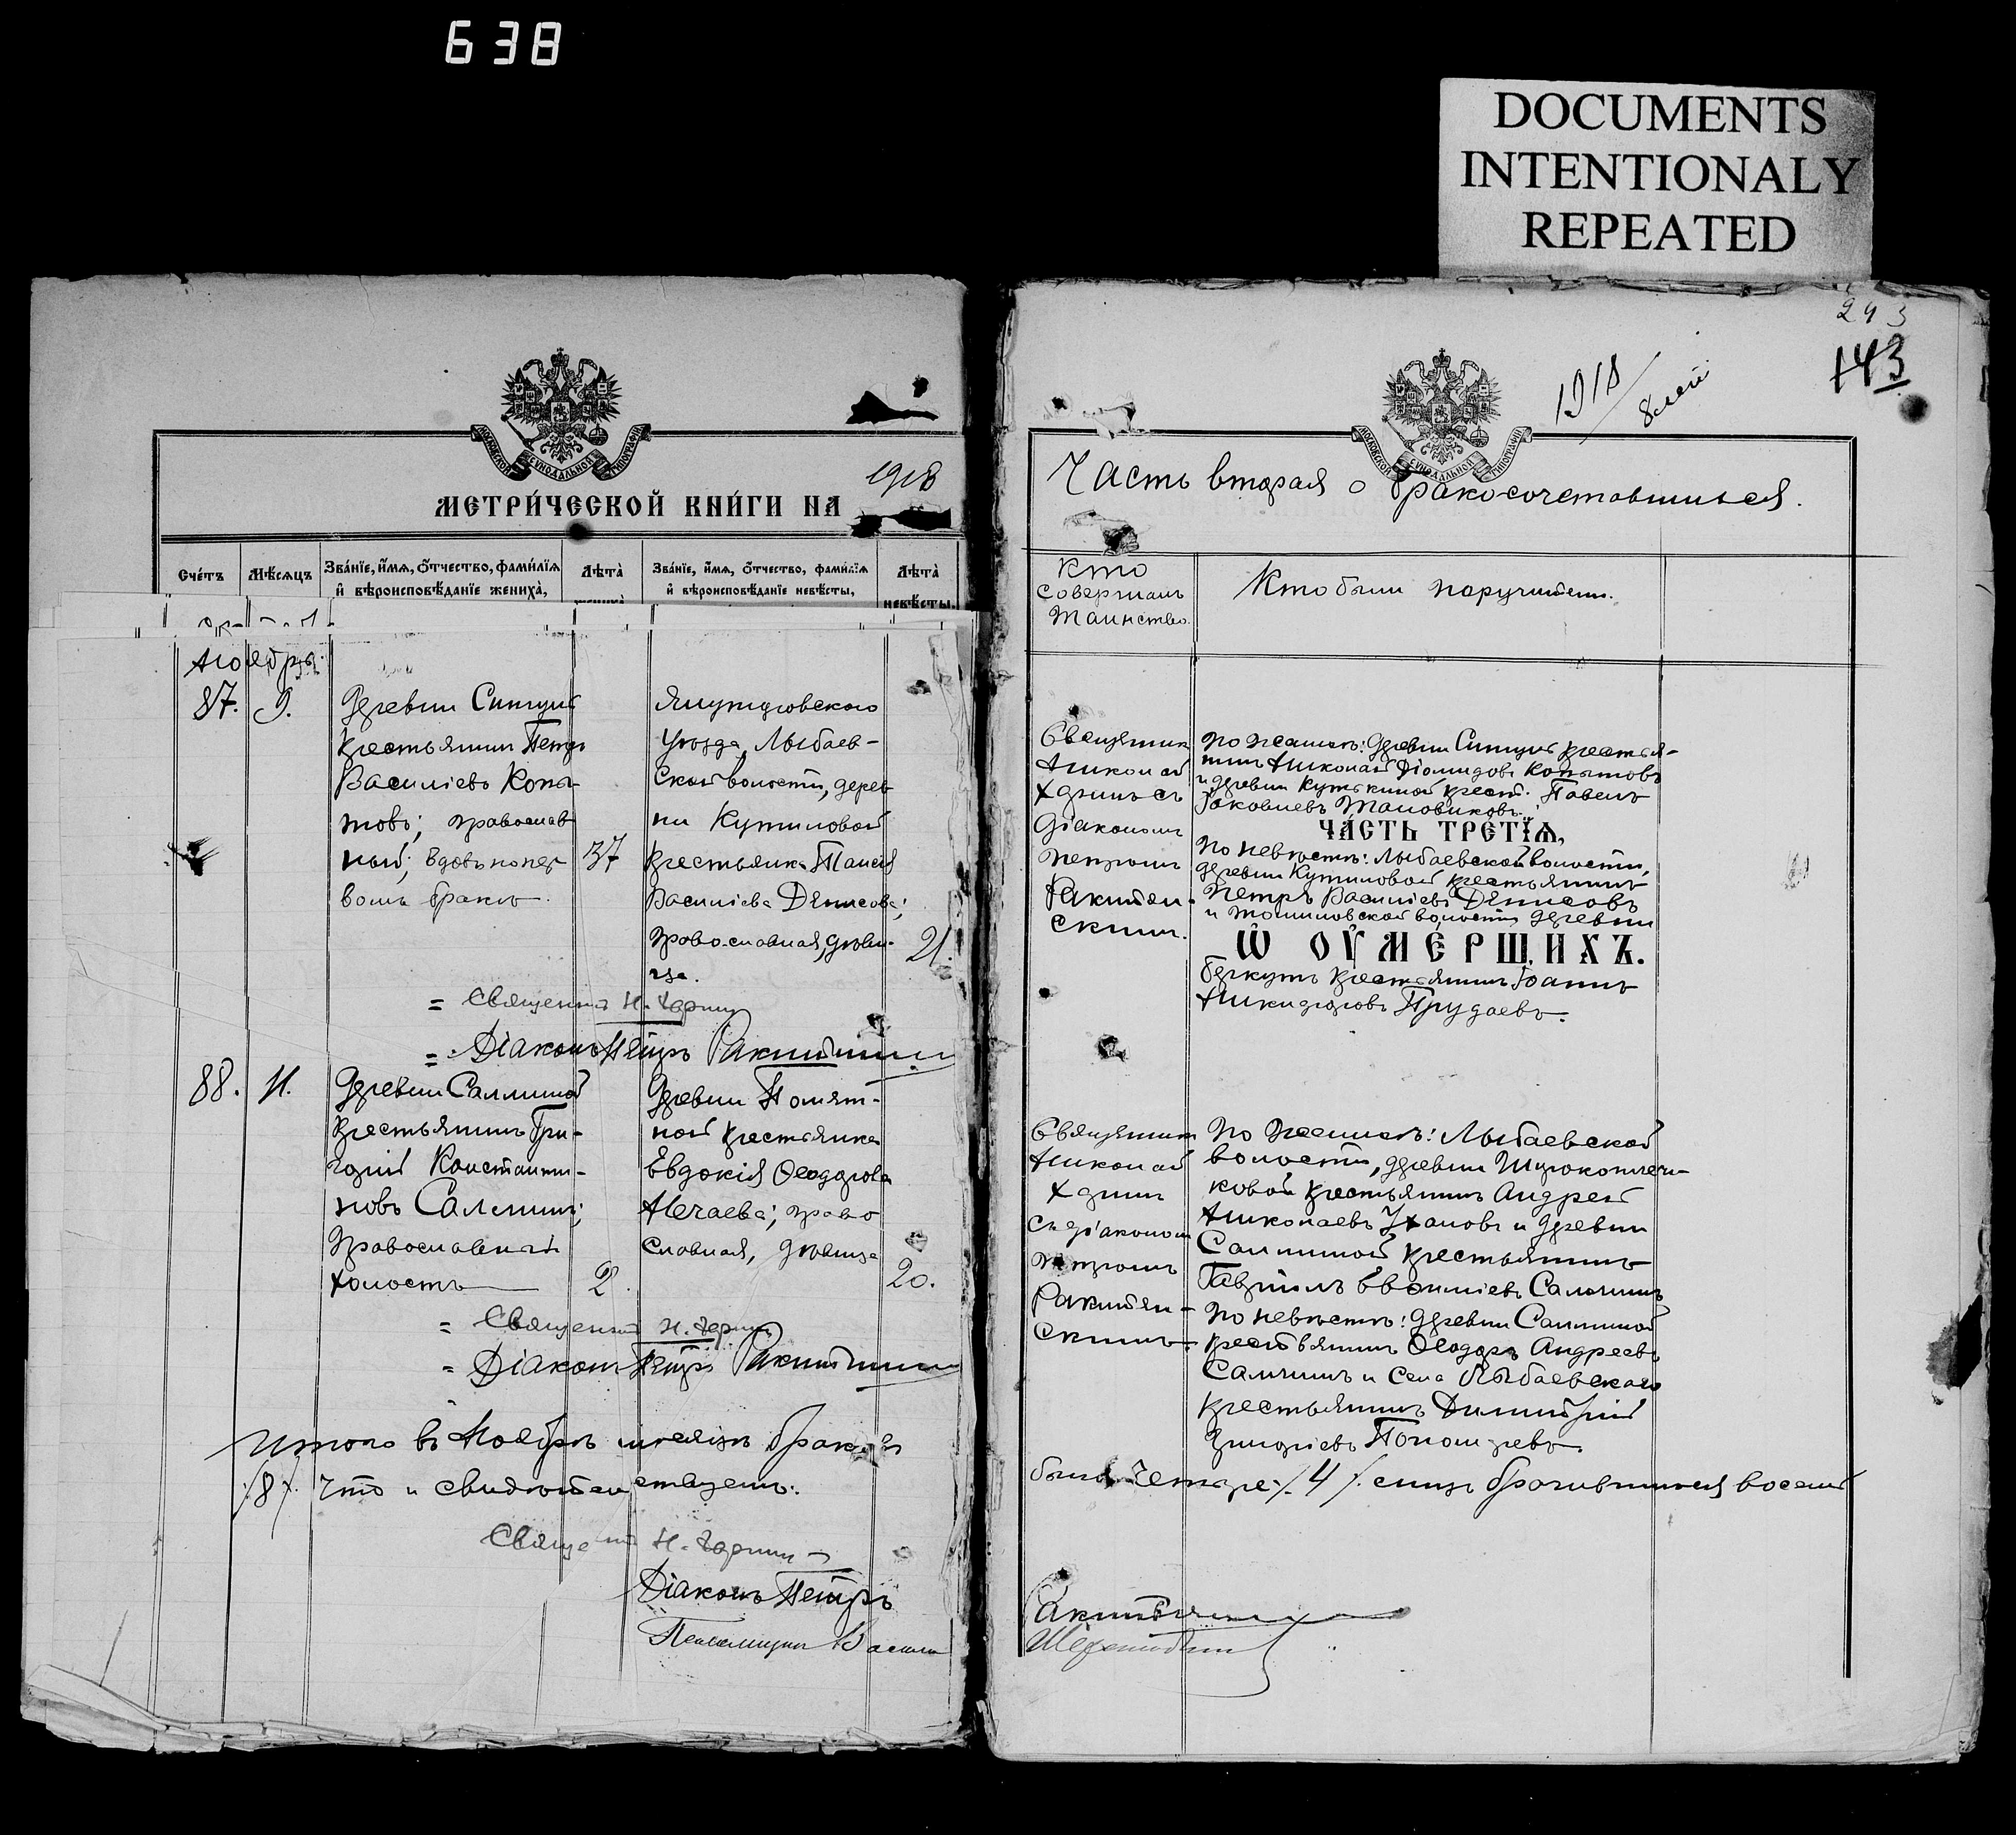 638
DOCUMENTS
INTENTIONALY
REPEATED
293
143
1918
МОСКОВСКОЙ СѴНОДАЛЬНОЙ ТИПОГРАФІИ
1918
МЕТРИ́ЧЕСКОЙ КНИ́ГИ НА
Сче́тъ
Мѣ́сяцъ
Зва́нїе, и҆́мя, ѻ҆́тчество, фами́лїя
и҆ вѣроисповѣ́данїе жениха̀,
Лѣта̀
жениха̀
Зва́нїе, и҆́мя, ѻ҆́тчество, фами́лїя
и҆ вѣроисповѣ́данїе невѣ́сты,
Лѣта̀
невѣ́сты
Ноябрь
87.
9.
Деревни
крестьянинъ Петръ
Василіевъ Копы-
товъ; православ
ный; вдовъ по пер
вомъ бракѣ.
37
Ялуторовскаго
уѣзда, Лыбаев-
ской волости, дерев
ни Кутиловой
крестьянка
Василіева Денисова;
православная, дѣви-
ца.
21.
= Священникъ Н.
= Діаконъ Петръ
88.
11.
Деревни Салминой
крестьянинъ Гри-
горій Константи-
новъ Салминъ;
Православный
холостъ
2
Деревни
ной крестьянка
Евдокія Ѳеодорова
Нечаева; право
славная, дѣвица
20.
= Священникъ Н.
= Діаконъ Петръ
Итого въ Ноябрѣ мѣсяцѣ браковъ
/8/. Что и свидѣтельствуемъ:
Священникъ Н.
Діаконъ Петръ
Псаломщикъ Василій
МОСКОВСКОЙ СѴНОДАЛЬНОЙ ТИПОГРАФІИ
Часть вторая о бракосочетавшихся.
Кто
совершалъ
таинство.
Кто были поручители.
Священникъ
Николай
съ
діакономъ
Петромъ
Ракитян-
скимъ.
По женихѣ: деревни крестья-
нинъ Николай Діомидовъ Копытовъ
и деревни крест. Павелъ
Іаковлевъ
ЧА́СТЬ ТРЕ́ТЇѦ,
По невѣстѣ: Лыбаевской волости,
деревни Кутиловой крестьянинъ
Петръ Василіевъ Денисовъ
и волости деревни
Ѽ ОУ҆МЕ́РШИХЪ.
Беркутъ крестьянинъ Іоаннъ
Никифоровъ Прудаевъ.
Священникъ
Николай
съ діакономъ
Петромъ
Ракитян-
скимъ.
По женихѣ: Лыбаевской
волости, деревни
ковой крестьянинъ Андрей
Николаевъ и деревни
Салминой крестьянинъ
Гавріилъ Салминъ
По невѣстѣ: деревни Салминой
крестьянинъ Ѳеодоръ Андреевъ
Салминъ и села Лыбаевскаго
крестьянинъ Димитрій
Григоріевъ Пономаревъ.
было четыре /4/. лицъ брачившихся восемь